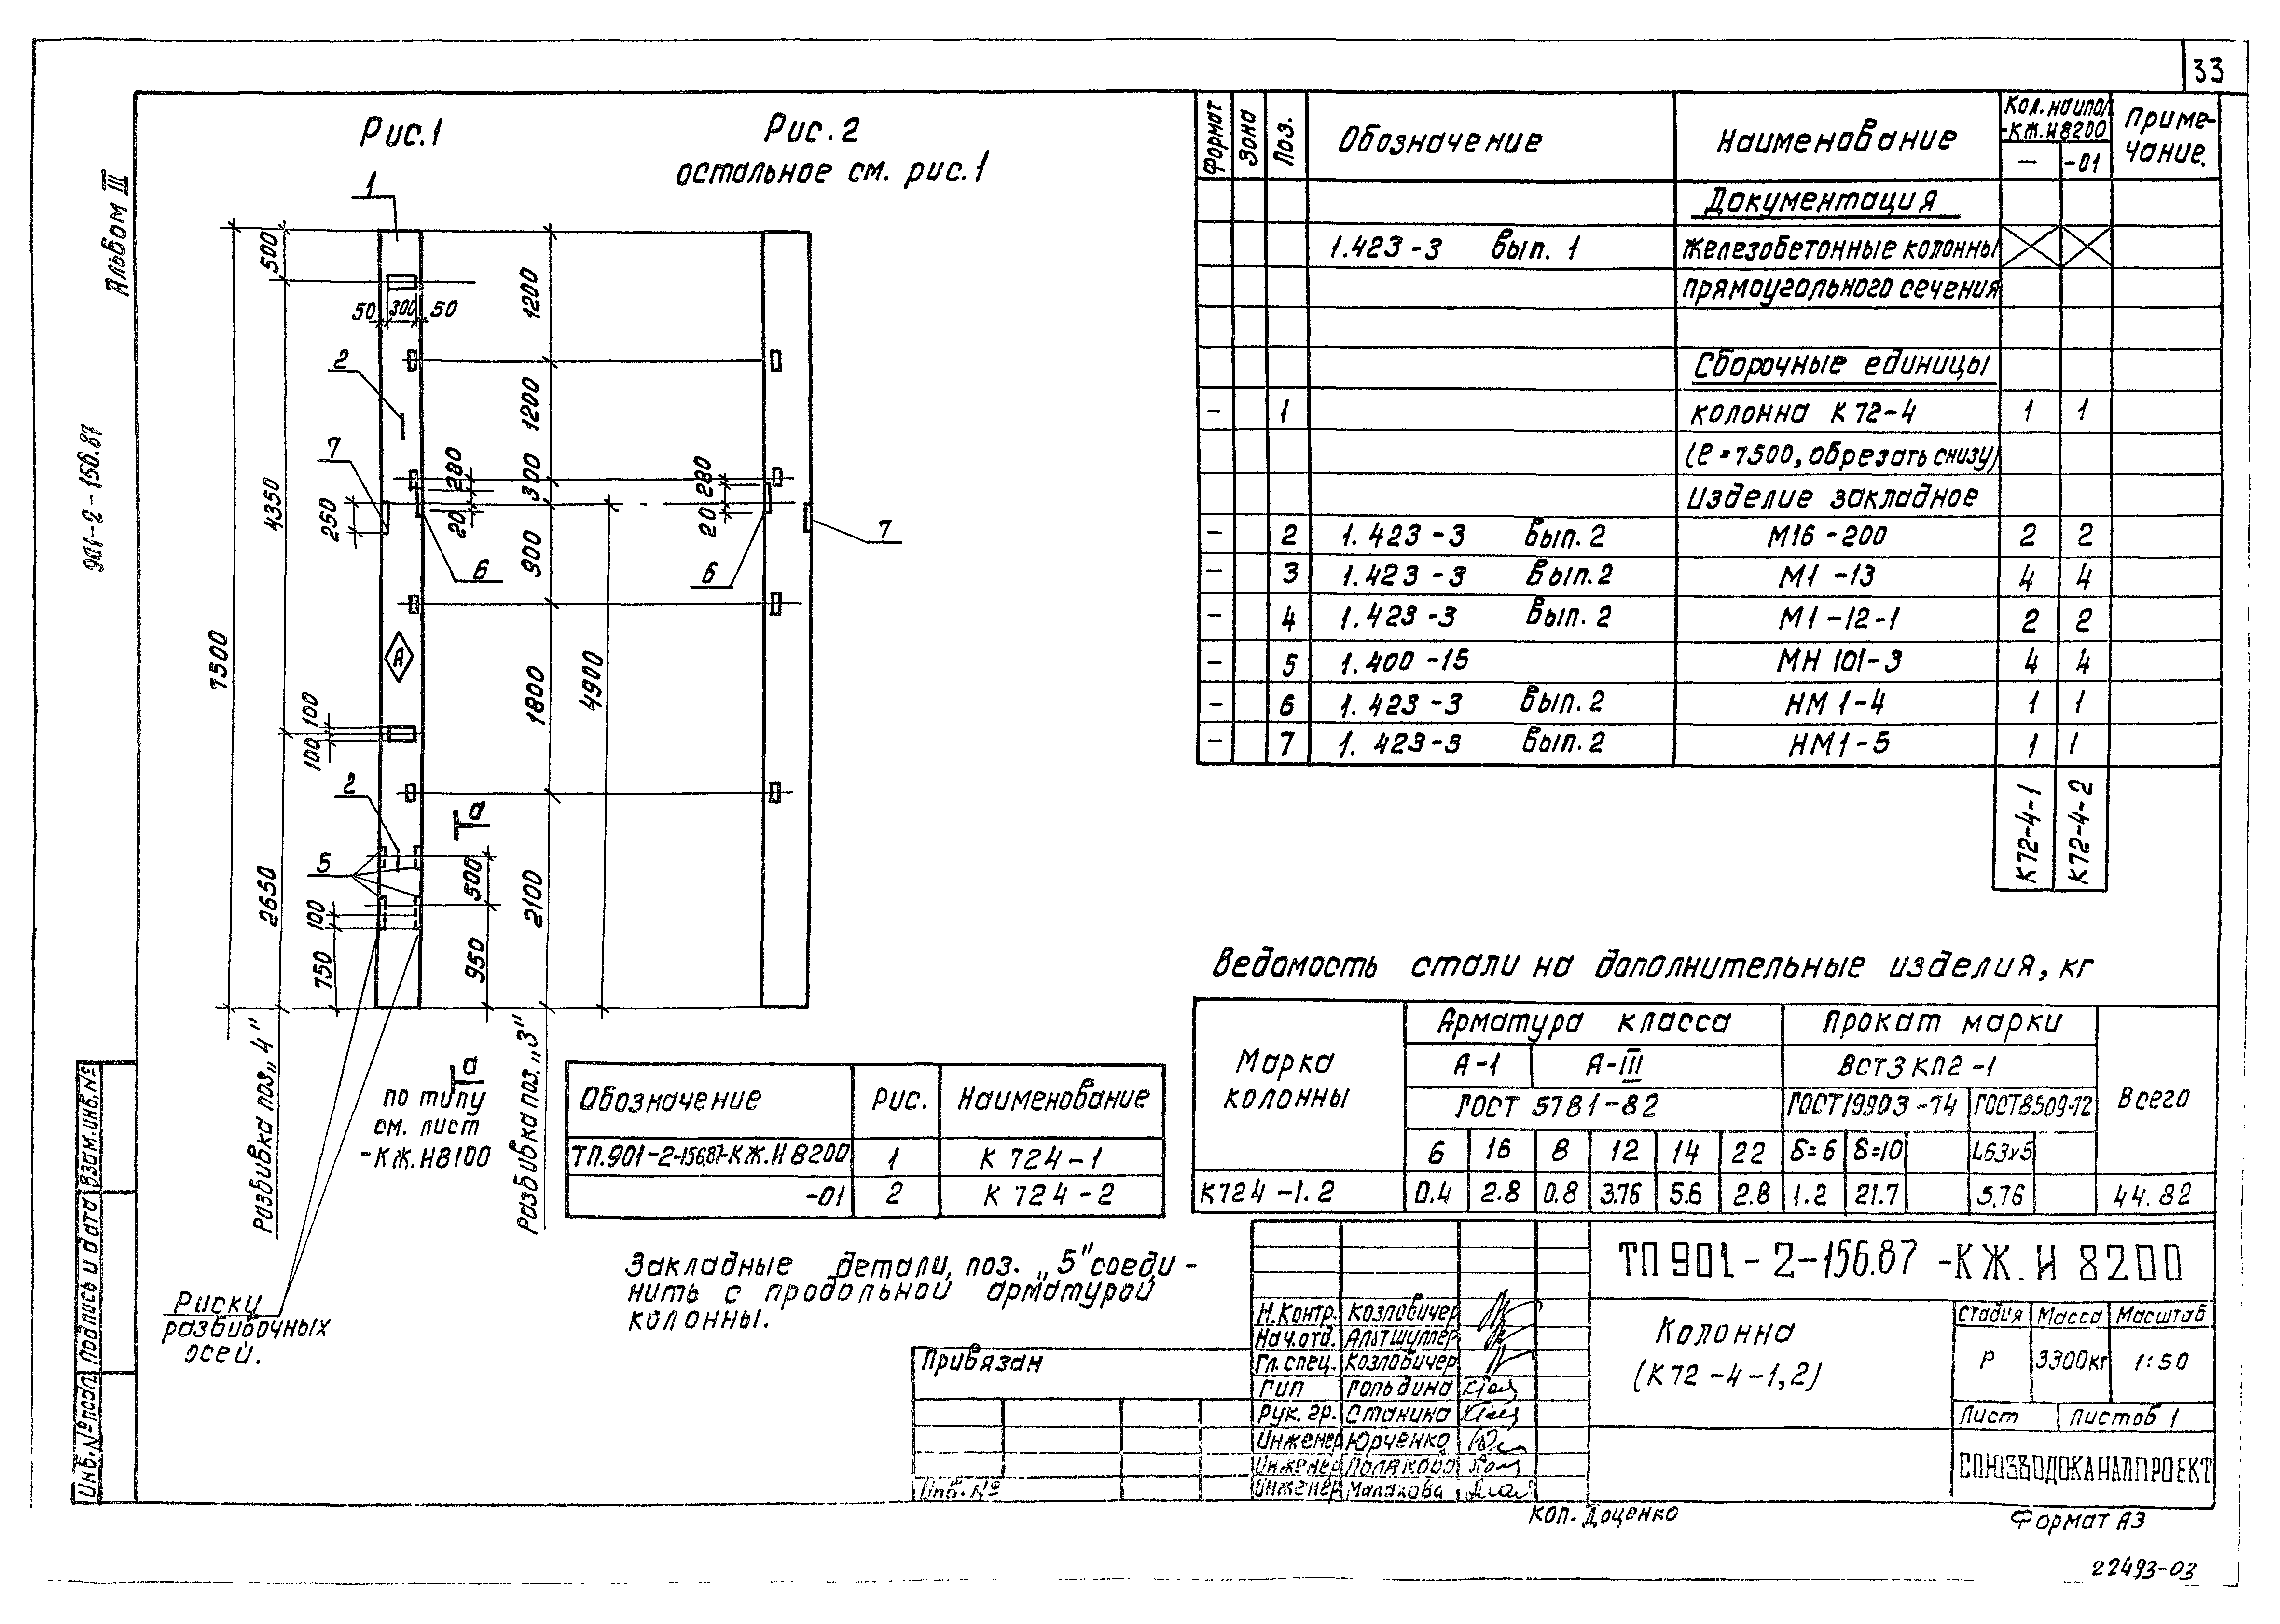 33
Альбом III
901-2-156.87
Рис.1
Рис. 2
остальное см. рис.1
1
500
50 300 50
1200
2
1200
7
280
300
280
4350
250
20
20
7
6
6
900
7500
А
4900
1800
100
100
2
а
5
500
2650
100
2100
750
950
Разбивка поз. „4"
Разбивка поз. „3"
а
по типу
см. лист
-КЖ.И8100
Риски
разбивочных
осей.
Формат Зона Поз. Обозначение Наименование Кол. на испол. -КЖ.И8200 Приме-чание.
— -01
Документация
1.423-3 Вып. 1 Железобетонные колонны
прямоугольного сечения
Сборочные единицы
– 1 колонна К 72-4 1 1
(ℓ=7500, обрезать снизу)
Изделие закладное
– 2 1.423-3 Вып. 2 М16-200 2 2
– 3 1.423-3 Вып.2 М1-13 4 4
– 4 1.423-3 Вып. 2 М1-12-1 2 2
– 5 1.400-15 МН 101-3 4 4
– 6 1.423-3 Вып. 2 НМ 1-4 1 1
– 7 1.423-3 Вып.2 НМ1-5 1 1
К72-4-1
К72-4-2
Ведомость стали на дополнительные изделия, кг
Марка колонны Арматура класса Прокат марки Всего
А-1 А-III ВСТ3КП2-1
ГОСТ 5781-82 ГОСТ19903-74 ГОСТ8509-72
6 16 8 12 14 22 δ=6 δ=10 L63х5
К724-1.2 0.4 2.8 0.8 3.76 5.6 2.8 1.2 21.7 5.76 44.82
Обозначение Рис. Наименование
ТП.901-2-156.87-КЖ.И 8200 1 К 724-1
-01 2 К 724-2
Закладные детали, поз. „5" соеди-
нить с продольной арматурой
колонны.
Привязан
Инв.№
ТП 901-2-156.87 -КЖ.И 8200
Н.Контр. Козловичер
Нач.отд. Альтшуллер
Гл.спец. Козловичер
Гип Гольдина
Рук.гр. Станина
Инженер Юрченко
Инженер
Инженер Малахова
Колонна
(К72-4-1,2)
Стадия Масса Масштаб
Р 3300кг 1:50
Лист Листов 1
СОЮЗВОДОКАНАЛПРОЕКТ
Коп. Доценко
Формат А3
22493-03
Инв.№подл. Подпись и дата Взам.инв.№